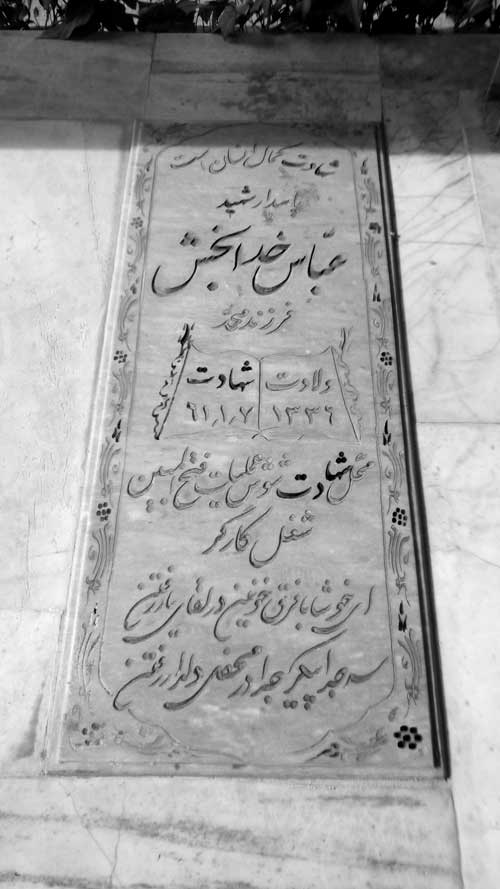 شهادت کمال انسان است
پاسدار شهید
عباس خدابخش
فرزند محمد
ولادت شهادت
۱۳۳۶ ۶۱/۱/۷
محل شهادت شوش عملیات فتح المبین
شغل کارگر
ای خوشا با فرق خونین در لقای یار رفتن
سر جدا پیکر جدا در محفل دلدار رفتن